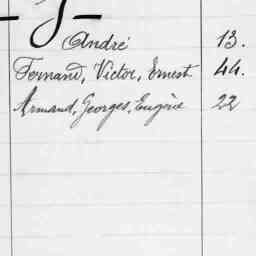 André 13.
Fernand, Victor, Ernest 44.
Armand, Georges, Eugène 22